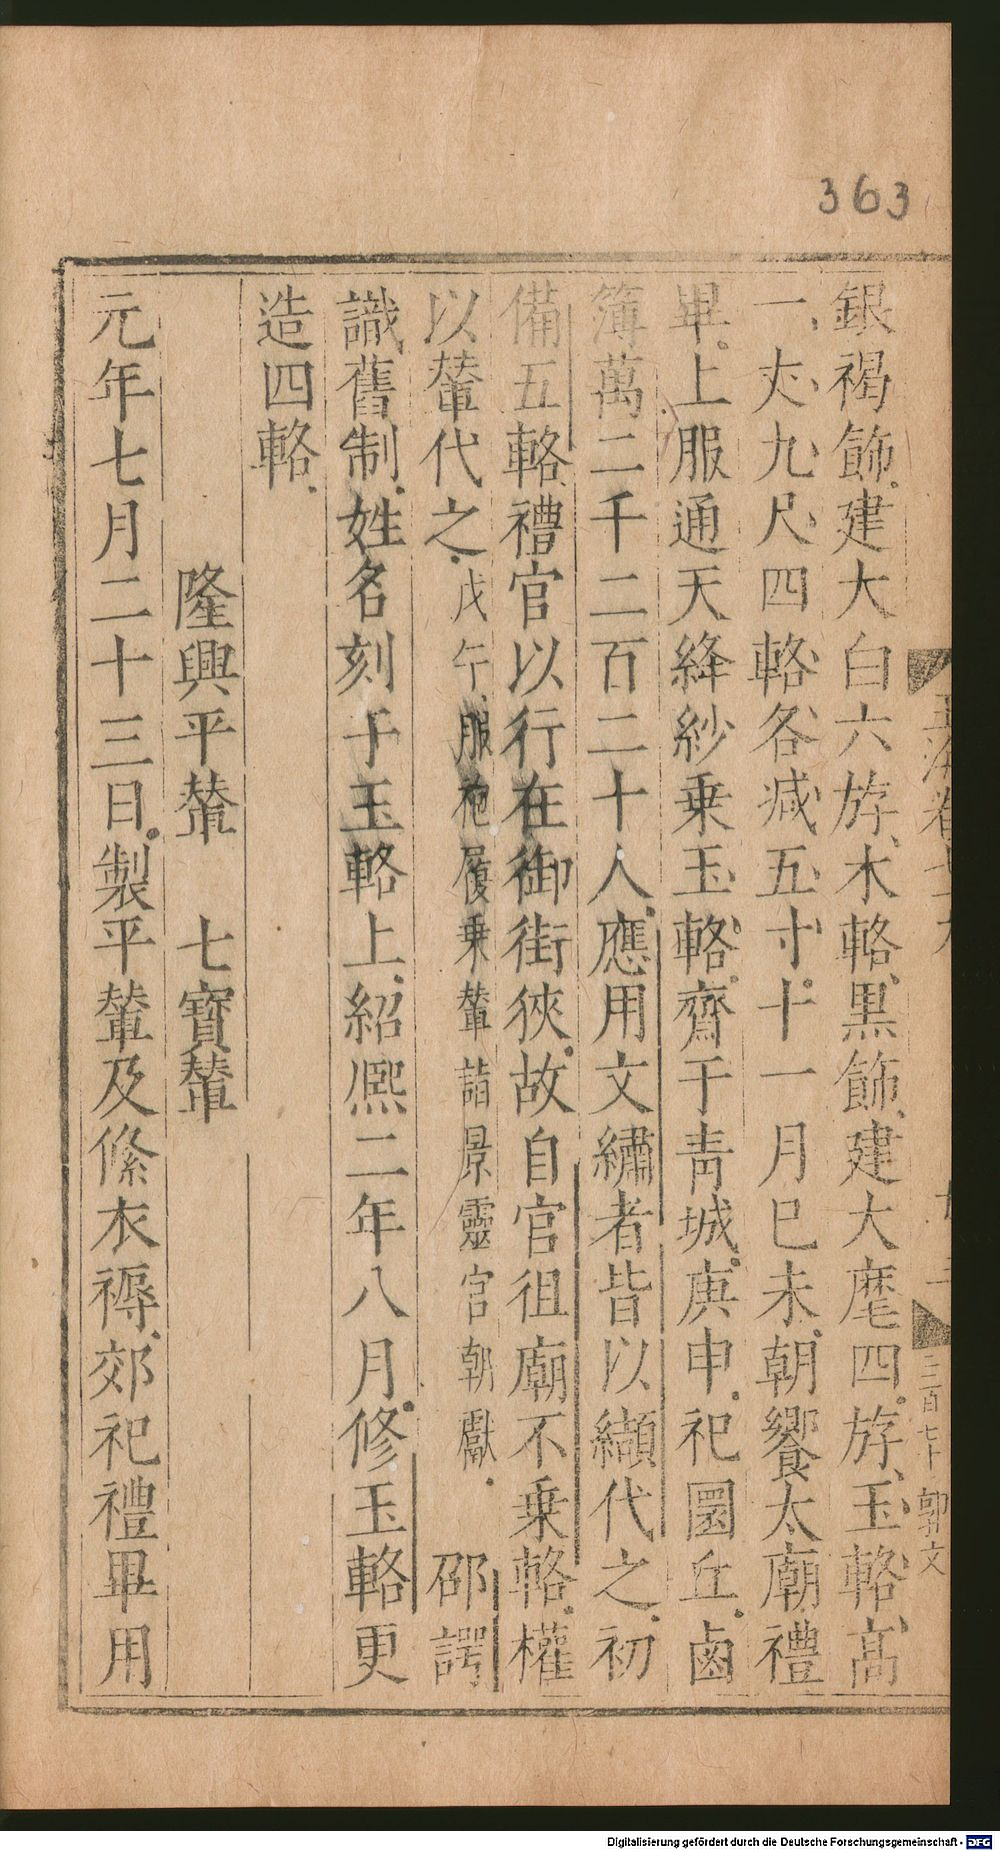 363
銀褐飾建大白六斿木輅黑飾建大麾四斿玉輅高
一丈九尺四輅各減五寸十一月巳未朝饗太廟禮
畢上服通天絳紗乗玉輅齊于青城庚申祀圜丘鹵
簿萬二千二百二十人應用文繡者皆以纈代之初
備五輅禮官以行在御街狹故自宫徂廟不乗輅權
以輦代之戊午服袍履乗輦詣景靈宫朝獻 邵諤
識舊制姓名刻于玉輅上紹熈二年八月修玉輅更
造四輅
隆興平輦 七寶輦
元年七月二十三日製平輦及絛衣褥郊祀禮畢用
三百七十 郭文
Digitalisierung gefördert durch die Deutsche Forschungsgemeinschaft - DFG